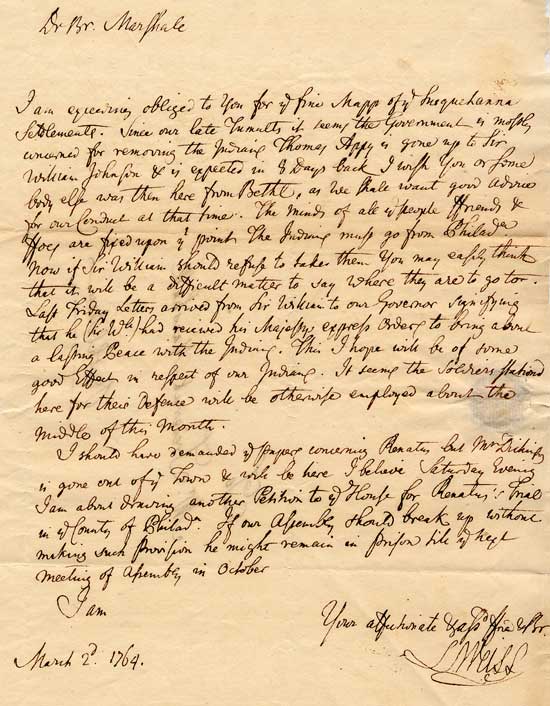 Dr Br. Marshale
I am exceeding obliged to You for ye fine Mapp of ye Susquehanna
Settlements. Since our late Tumults it seems the Government is mostly
concerned for removing the Indians Thomas Appy is gone up to Sir
William Johnson & is expected in 8 Days back I wish You or some
body else was then here from Bethl. as we shale want good advice
for our Conduct at that time. The minds of ale ye people ffriends &
ffoes are fixed upon ye point The Indians must go from Philada
Now if Sir William should refuse to take them You may easily think
that it will be a difficult matter to say where they are to go to.
Last Friday Letters arrived from Sir William to our Governor signifying
that he (Sir Wm) had received his Majestys express Orders to bring about
a lasting Peace with the Indians. This I hope will be of some
good Effect in respect of our Indians. It seems the Soldiers stationd
here for their Defence will be otherwise employed about the
middle of this Month.
I should have demanded ye papers concerning Renatus but Mr Dickinson
is gone out of ye Town & will be here I believe Saturday Evening
I am about drawing another Petition to ye House for Renatus's Trial
in ye County of Philada. If our Assembly should break up without
making such Provision he might remain in prison tile ye next
meeting of Assembly in October
I am
Your affectionate ffrie & Br.
L Weiss
March 2d. 1764.